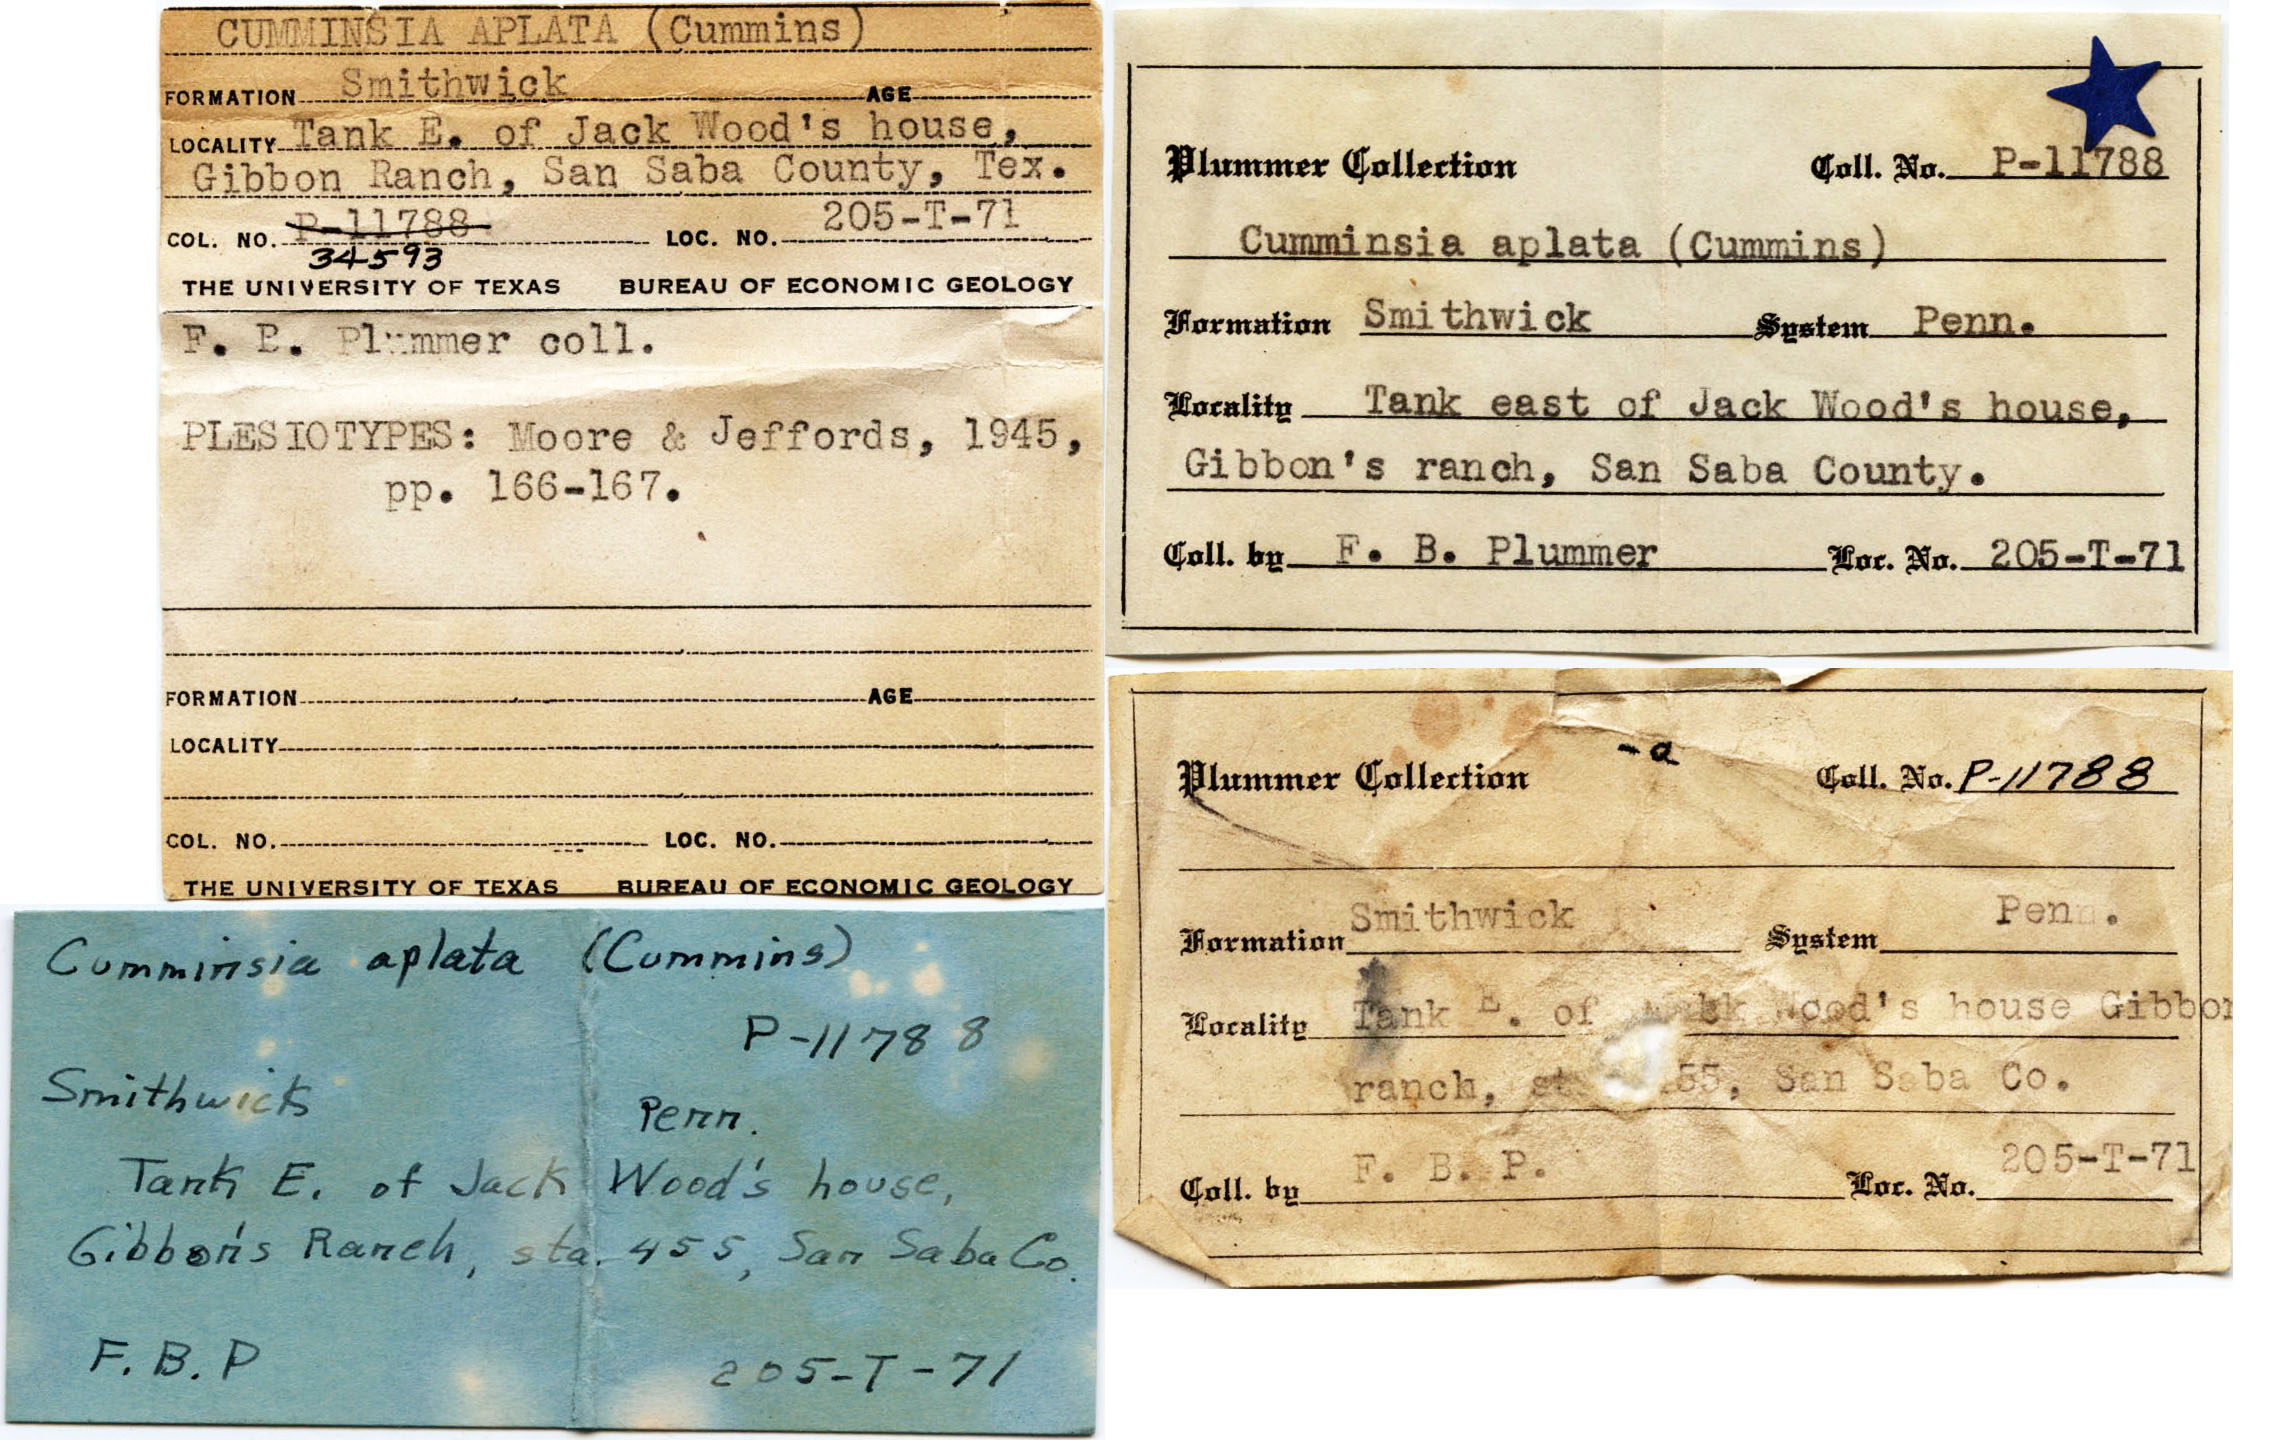 CUMMINSIA APLATA (Cummins)
FORMATION Smithwick AGE
LOCALITY Tank E. of Jack Wood's house,
Gibbon Ranch, San Saba County, Tex.
COL. NO. P-11788 LOC. NO. 205-T-71
34593
THE UNIVERSITY OF TEXAS BUREAU OF ECONOMIC GEOLOGY
F. B. Plummer coll.
PLESIOTYPES: Moore & Jeffords, 1945,
pp. 166-167.
FORMATION AGE
LOCALITY
COL. NO. LOC. NO.
THE UNIVERSITY OF TEXAS BUREAU OF ECONOMIC GEOLOGY
Plummer Collection Coll. No. P-11788
Cumminsia aplata (Cummins)
Formation Smithwick System Penn.
Locality Tank east of Jack Wood's house,
Gibbon's ranch, San Saba County.
Coll. by F. B. Plummer Loc. No. 205-T-71
-a
Plummer Collection Coll. No. P-11788
Formation Smithwick System Penn.
Locality Tank E. of Wood's house Gibbon
ranch, 55, San Saba Co.
Coll. by F. B. P. Loc. No. 205-T-71
Cumminsia aplata (Cummins)
P-11788
Smithwick Penn.
Tank E. of Jack Wood's house,
Gibbon's Ranch, sta. 455, San Saba Co.
F. B. P 205-T-71